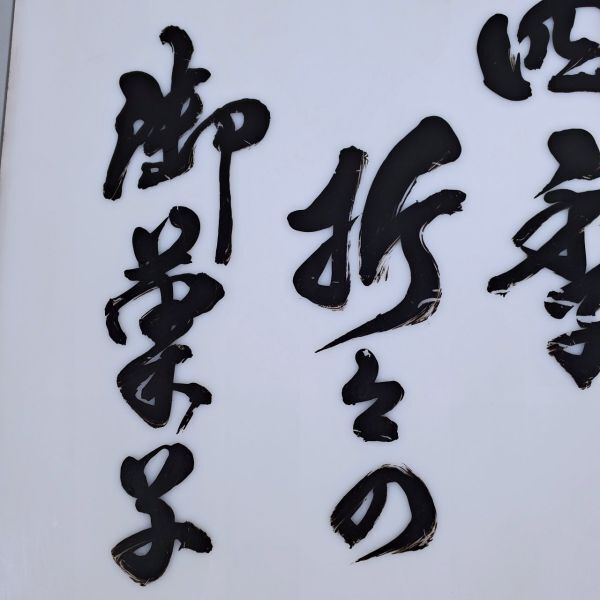 四季
折々の
御菓子